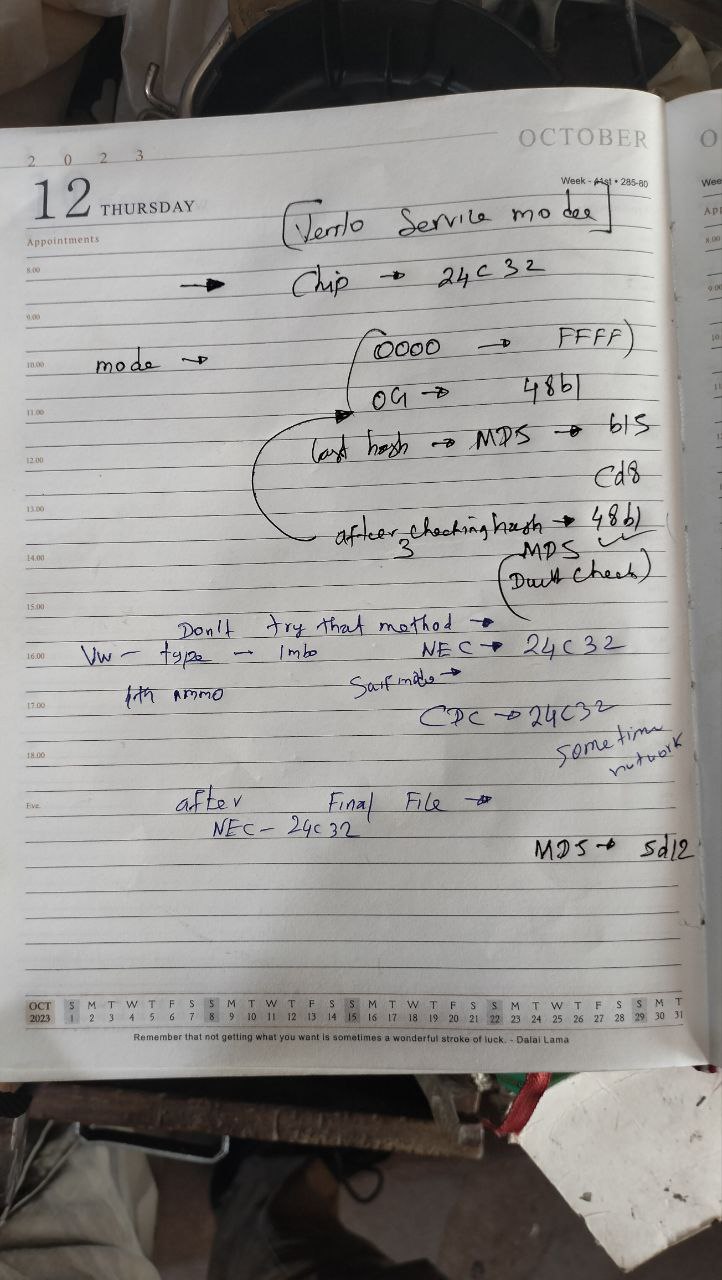 OCTOBER
2 0 2 3
12 THURSDAY
Week - 41st • 285-80
Appointments
[Verrlo Service modee]
8.00
→ Chip → 24C32
9.00
10.00
mode → 0000 → FFFF)
OG → 48b1
11.00
last hash → MD5 → b15
12.00
Cd8
13.00
after 3 checking hash → 48b1
MD5
14.00
Check)
15.00
Don't try that method →
16.00
Vw - type - Imb NEC → 24C32
17.00
CDC → 24C32
sometime
18.00
network
Eve.
after Final File →
NEC - 24C32
MD5 → 5d12
OCT S M T W T F S S M T W T F S S M T W T F S S M T W T F S S M T
2023 1 2 3 4 5 6 7 8 9 10 11 12 13 14 15 16 17 18 19 20 21 22 23 24 25 26 27 28 29 30 31
Remember that not getting what you want is sometimes a wonderful stroke of luck. - Dalai Lama
O
Wee
8.00
9.00